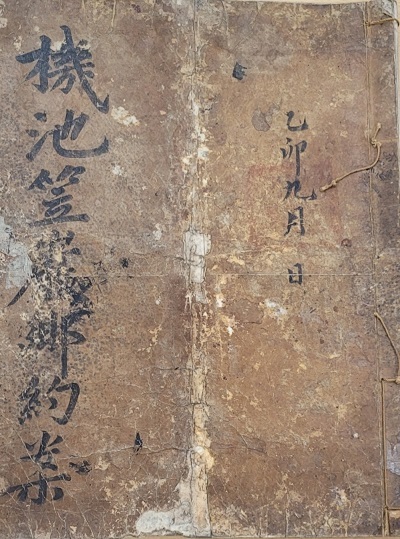 乙卯九月 日
機池笠巖鄉約案